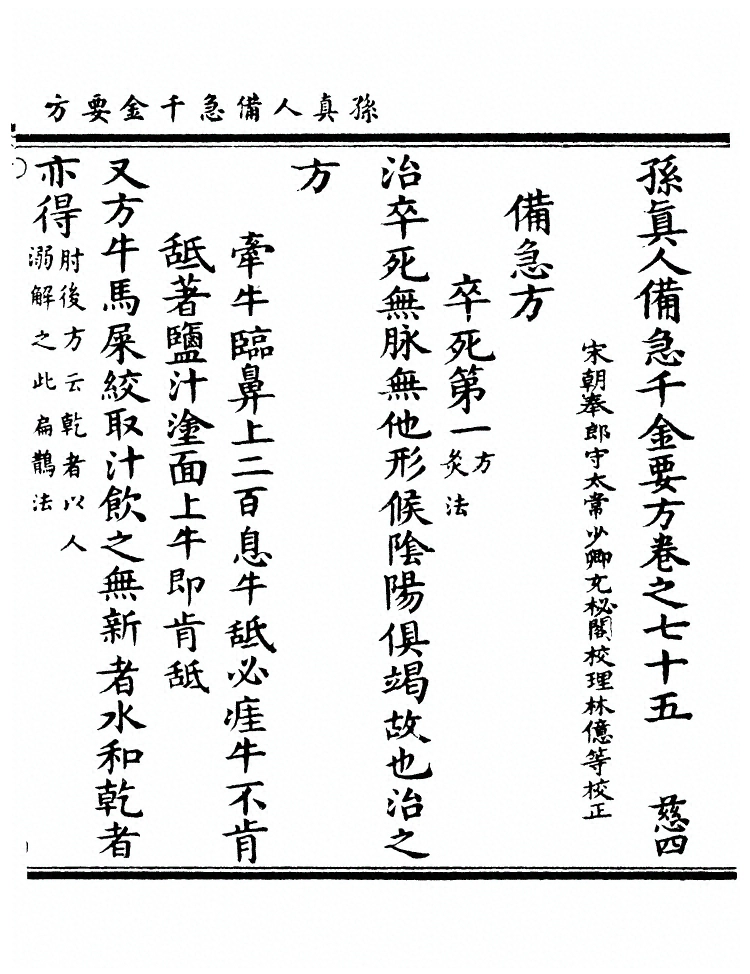 孫真人備急千金要方
孫眞人備急千金要方卷之七十五　慈四
宋朝奉郎守太常少卿充秘閣校理林億等校正
備急方
卒死第一方灸法
治卒死無脉無他形候陰陽俱竭故也治之
方
牽牛臨鼻上二百息牛舐必瘥牛不肯
舐著鹽汁塗面上牛即肯舐
又方牛馬屎絞取汁飲之無新者水和乾者
亦得肘後方云乾者以人
溺解之此扁鵲法